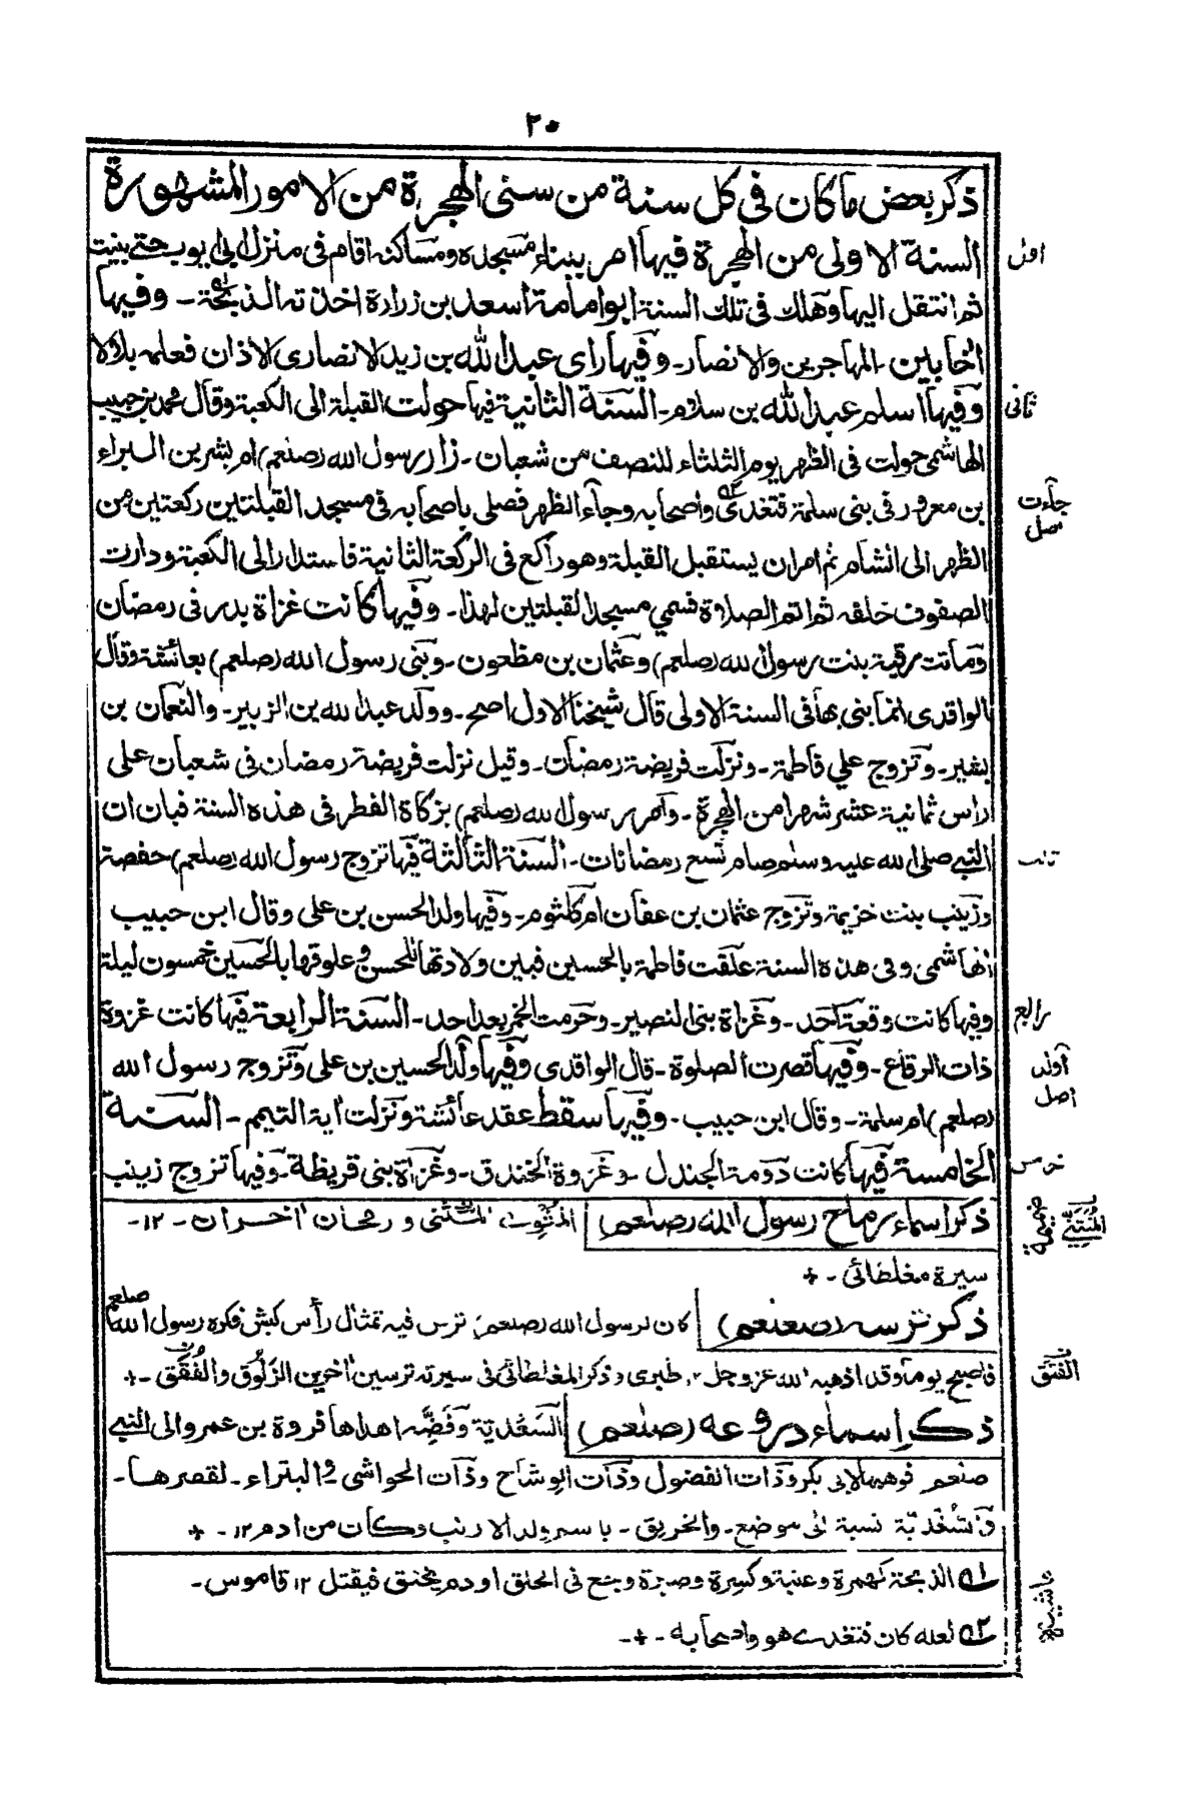 ٢٠
ذكر بعض ما كان فى كل سنة من سنى الهجرة من الامور المشهورة
السنة الاولى من الهجرة فيها امر ببناء مسجده ومساكنه اقام فى منزل ابى ايوب حتى بنيت
اول
ثم انتقل اليها وهلك فى تلك السنة ابو امامة اسعد بن زرارة اخذته الذبحة - وفيها
اخا بين المهاجرين والانصار - وفيها راى عبد الله بن زيد الانصارى الاذان فعلمه بلالا
وفيها اسلم عبد الله بن سلام - السنة الثانية فيها حولت القبلة الى الكعبة وقال محمد بن حبيب
ثانى
الهاشمى حولت فى الظهر يوم الثلثاء للنصف من شعبان - زار رسول الله (صلعم) ام بشر بن البراء
بن معرور فى بنى سلمة فتغدى واصحابه وجآء الظهر فصلى باصحابه فى مسجد القبلتين ركعتين من
جآءت
اصل
الظهر الى الشام ثم امر ان يستقبل القبلة وهو راكع فى الركعة الثانية فاستدار الى الكعبة ودارت
الصفوف خلفه ثم اتم الصلاة فسمي مسجد القبلتين لهذا - وفيها كانت غزاة بدر فى رمضان
وماتت رقية بنت رسول الله (صلعم) وعثمان بن مظعون - وبنى رسول الله (صلعم) بعائشة وقال
الواقدى انما بنى بها فى السنة الاولى قال شيخنا الاول اصح - وولد عبد الله بن الزبير - والنعمان بن
بشير - وتزوج علي فاطمة - ونزلت فريضة رمضان - وقيل نزلت فريضة رمضان فى شعبان على
راس ثمانية عشر شهرا من الهجرة - وامر رسول الله (صلعم) بزكاة الفطر فى هذه السنة فبان ان
النبي صلى الله عليه وسلم صام تسع رمضانات - السنة الثالثة فيها تزوج رسول الله (صلعم) حفصة
ثالث
وزينب بنت خزيمة وتزوج عثمان بن عفان ام كلثوم - وفيها ولد الحسن بن على وقال ابن حبيب
الهاشمى وفى هذه السنة علقت فاطمة بالحسين فبين ولادتها للحسن وعلوقها بالحسين خمسون ليلة
وفيها كانت وقعة احد - وغزاة بنى النضير - وحرمت الخمر بعد احد - السنة الرابعة فيها كانت غزوة
رابع
ذات الرقاع - وفيها قصرت الصلوة - قال الواقدى وفيها ولد الحسين بن على وتزوج رسول الله
اصل
(صلعم) ام سلمة - وقال ابن حبيب - وفيها سقط عقد عائشة ونزلت اية التيمم - السنة
الخامسة فيها كانت دومة الجندل - وغزوة الخندق - وغزاة بنى قريظة - وفيها تزوج زينب
خامس
ذكر اسماء رماح رسول الله (صلعم) المثوى المنثنى ورمحان اخران - ١٢ -
سيرة مغلطائى - +
ذكر ترسه (صلعم) كان لرسول الله (صلعم) ترس فيه تمثال رأس كبش فكره رسول الله صلعم
فاصبح يوما وقد اذهبه الله عز وجل ١٢ طبرى وذكر المغلطائى فى سيرته ترسين اخرين الزلوق والفتق - +
الفتق
ذكر اسماء دروعه (صلعم) السعدية وفضة اهداها فروة بن عمرو الى النبي
صلعم فوهبها لابى بكر وذات الفضول وذات الوشاح وذات الحواشى و البتراء - لقصرها -
والسغدية نسبة الى موضع - والخرنق - باسم ولد الارنب وكان من ادم ١٢ - +
١ه الذبحة كهمزة وعنبة وكسرة وصبرة وجع فى الحلق او دم يخنق فيقتل ١٢ قاموس -
حاشية
٢ه لعله كان فتغدى هو واصحابه - + -